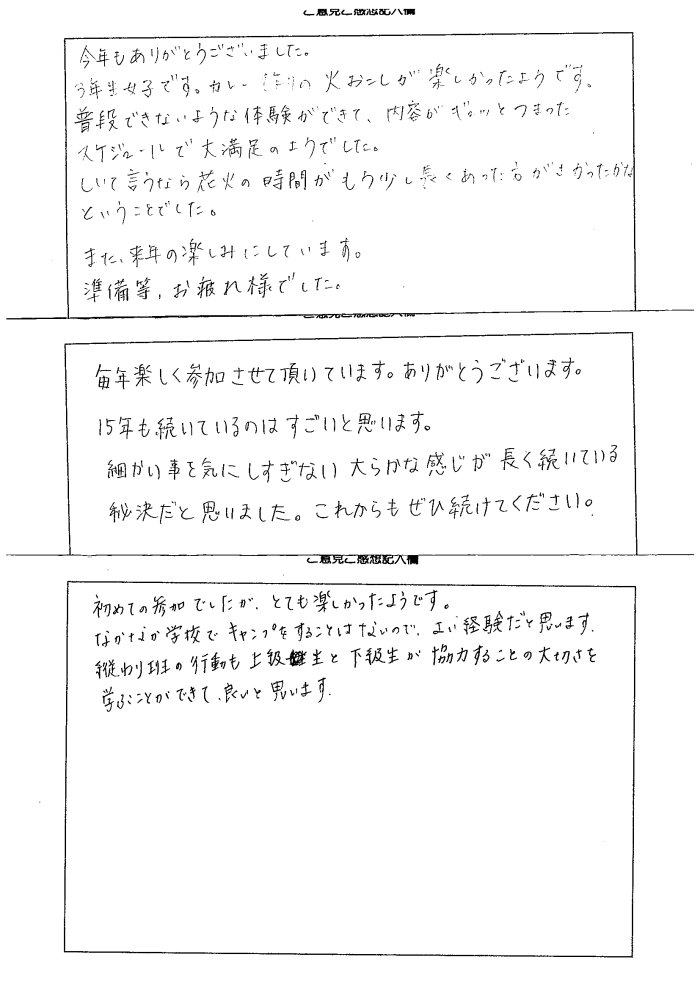 ご意見ご感想記入欄
今年もありがとうございました。
3年生女子です。カレー作りの火おこしが楽しかったようです。
普段できないような体験ができて、内容がギュッとつまった
スケジュールで大満足のようでした。
しいて言うなら花火の時間がもう少し長くあった方がよかったかな
ということでした。
また、来年の楽しみにしています。
準備等、お疲れ様でした。
ご意見ご感想記入欄
毎年楽しく参加させて頂いています。ありがとうございます。
15年も続いているのはすごいと思います。
細かい事を気にしすぎない大らかな感じが長く続いている
秘決だと思いました。これからもぜひ続けてください。
ご意見ご感想記入欄
初めての参加でしたが、とても楽しかったようです。
なかなか学校でキャンプをすることはないので、よい経験だと思います.
縦わり班の行動も上級生と下級生が協力することの大切さを
学ぶことができて、良いと思います.